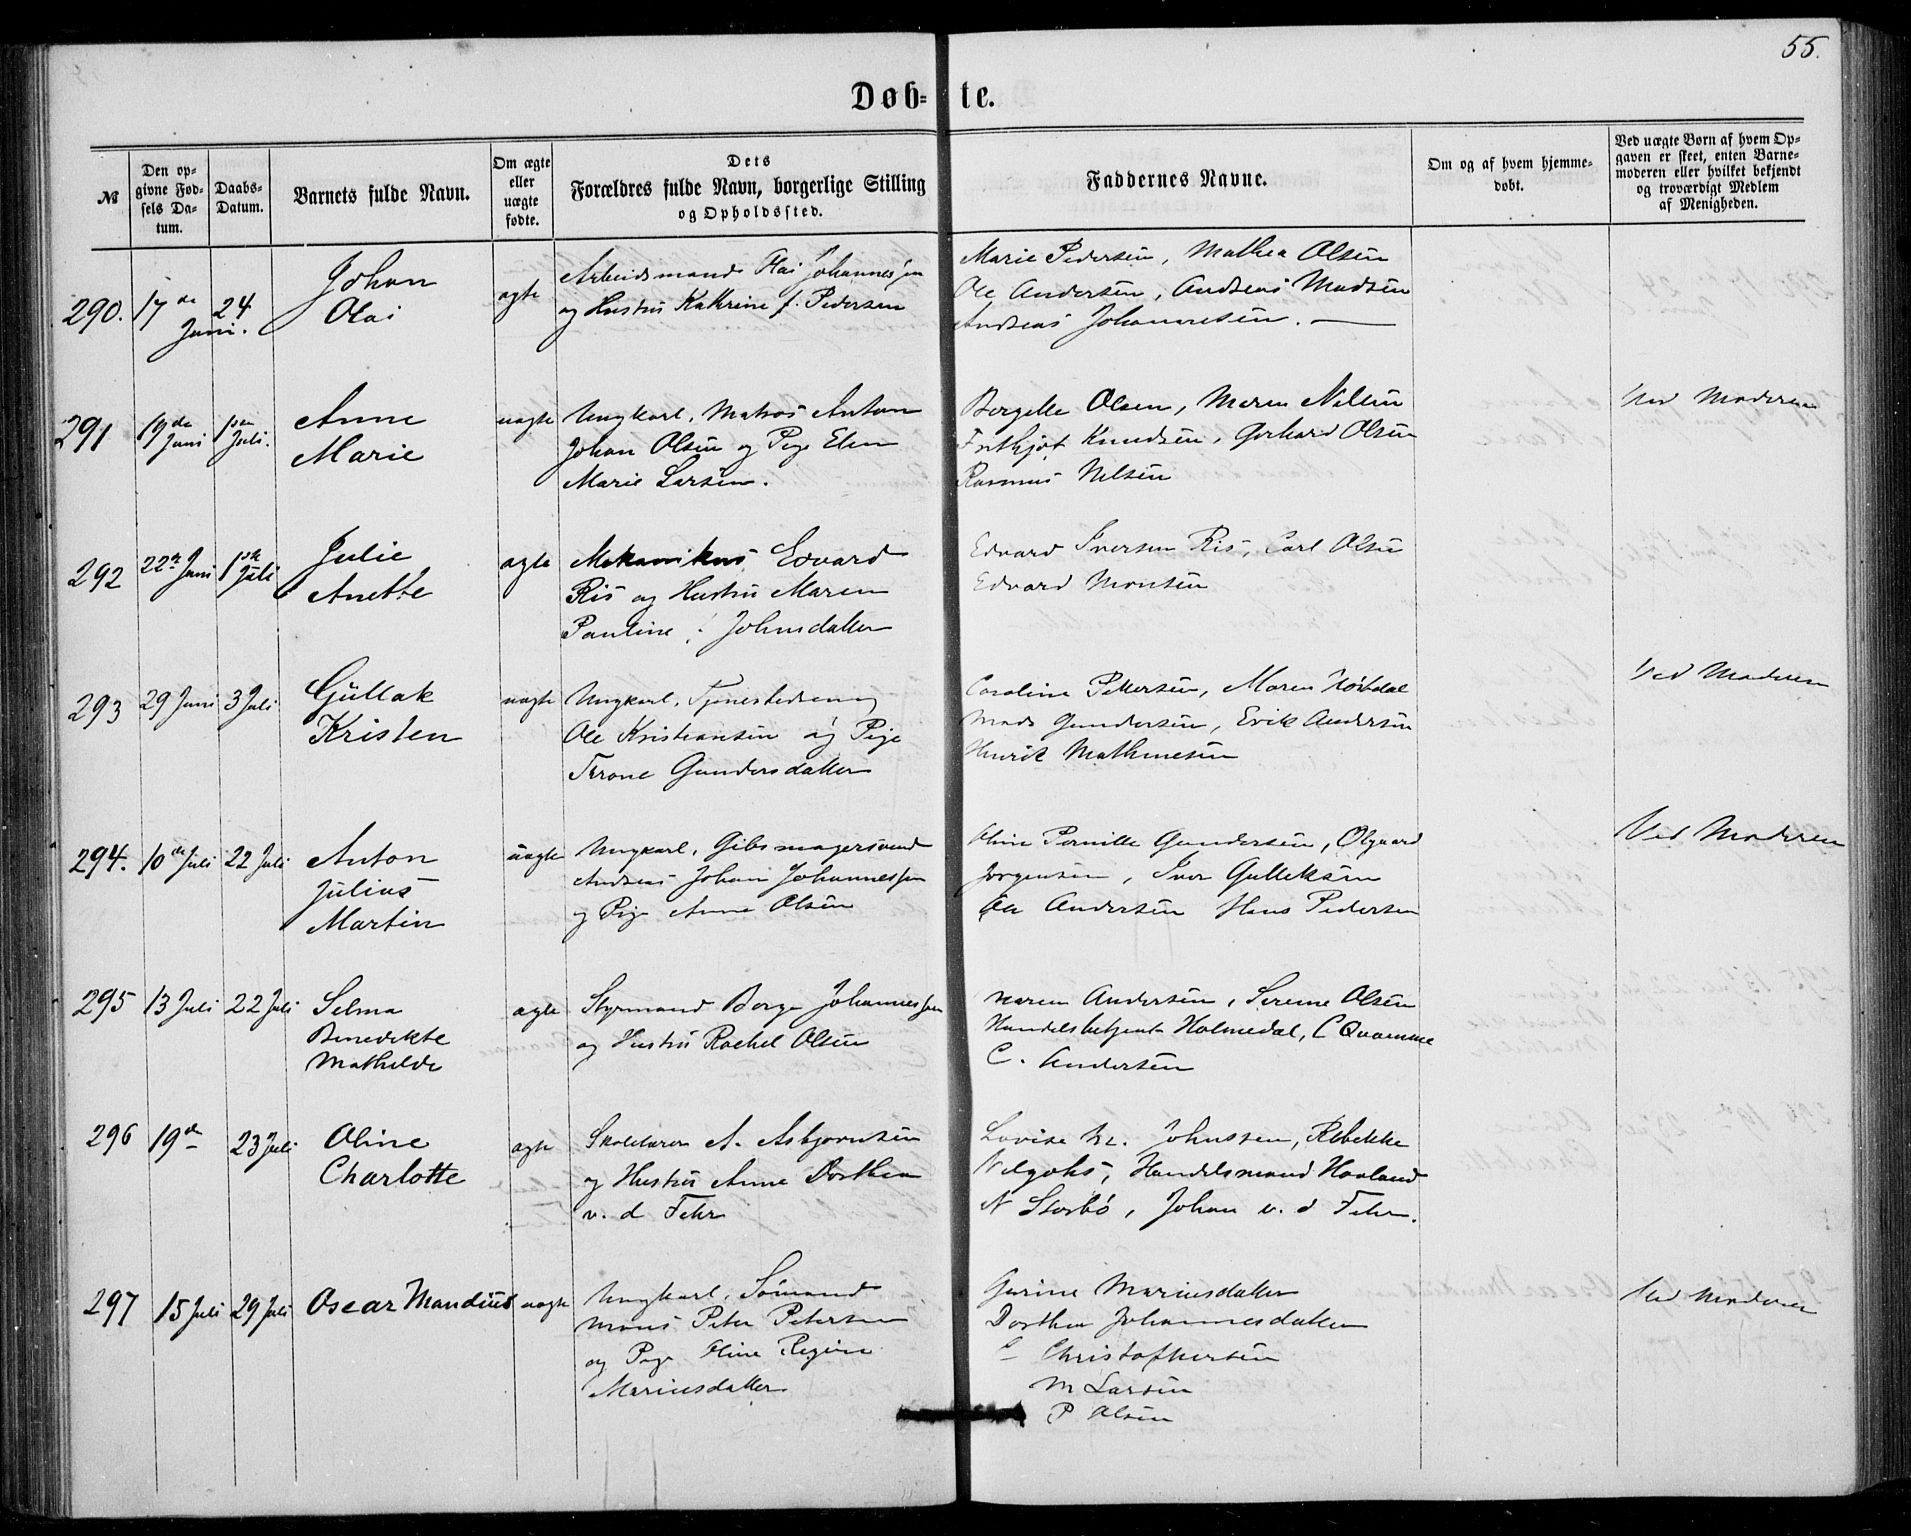 55.
Døb- te.
№
Den op-
givne Fød-
sels Da-
tum.
Daabs-
Datum.
Barnets fulde Navn.
Om ægte
eller
uægte
fødte.
Dets
Forældres fulde Navn, borgerlige Stilling
og Opholdssted.
Faddernes Navne.
Om og af hvem hjemme-
døbt.
Ved uægte Børn af hvem Op-
gaven er skeet, enten Barne-
moderen eller hvilket bekjendt
og troværdigt Medlem
af Menigheden.
290. 17de Juni 24. Juni.
Johan
Olai
ægte
Arbeidsmand Olai Johannessen
og Hustru Kathrine f. Pedersen
Marie Pedersen, Mathea Olsen
Ole Andersen, Andreas Madsen
Andreas Johannesen.
291 19de Juni 1ste Juli.
Anne
Marie
uægte
Ungkarl, Matros Anton
Johan Olsen og Pige Elen
Marie Larsen.
Bergette Olsen, Maren Nilsen
Frithjof Knudsen, Gerhard Olsen
Rasmus Nilsen
Ved Moderen
292 22de Juni 1ste Juli
Julie
Anette
ægte
Mekanikus Edvard
Ris og Hustru Maren
Pauline f. Johnsdatter
Edvard Iversen Ris, Carl Olsen
Edvard Monsen
293 29 Juni 3 Juli
Gullak
Kristen
uægte
Ungkarl, Tjenestedreng
Ole Kristiansen og Pige
Trone Gundersdatter
Caroline Pettersen, Maren
Mads Gundersen, Erik Andersen
Henrik Mathiesen
Ved Moderen
294. 10de Juli 22 Juli
Anton
Julius
Martin
uægte
Ungkarl, Gibsmagersvend
Andreas Johan Johannessen
og Pige Anne Olsen
Oline Pernille Gundersen, Olgaard
Jørgensen, Iver Gulleksen
Ole Andersen Hans Pedersen
Ved Moderen
295 13 Juli 22 Juli
Selma
Benedikte
Mathilde
ægte
Styrmand Børge Johannessen
og Hustru Rachel Olsen
Maren Andersen, Serine Olsen
Handelsbetjent Holmedal, C Quamme
C. Andersen
296 19de 23 Juli
Oline
Charlotte
ægte
Skolelærer A. Asbjørnsen
og Hustru Anne Dorthea
v. d Fehr
Lovise Johnssen, Rebekke
Handelsmand Hovland
N Storbø, Johan v. d Fehr.
297 15 Juli 29 Juli
Oscar Mandius
uægte
Ungkarl, Sømand
Mons Peter Petersen
og Pige Oline Regine
Mariusdatter
Gurine Mariusdatter
Dorthea Johannesdatter
C Christofhersen
M Larsen
P Olsen
Ved Moderen